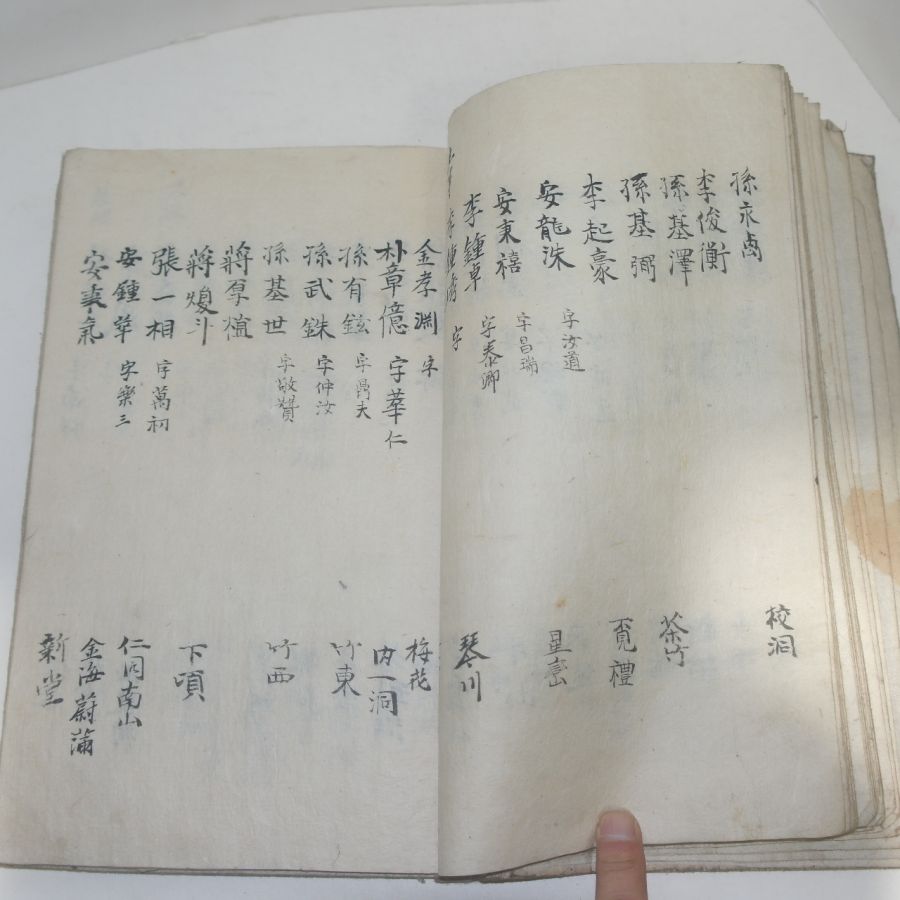 孫永卨
李俊衡
孫基澤
孫基弼
李起豪
安龍洙 字汝道
安東禧 字昌瑞
李鍾卓 字泰卿
字
校洞
茶竹
覓禮
星巒
琴川
金孝淵 字
朴章億 字華仁
孫有鉉 字禹夫
孫武銖 字仲汝
孫基世 字敬贊
蔣
蔣 斗
張一相 字萬初
安鍾華 字樂三
安 氣
梅花
內一洞
竹東
竹西
下項
仁同南山
金海蔚蒲
新堂